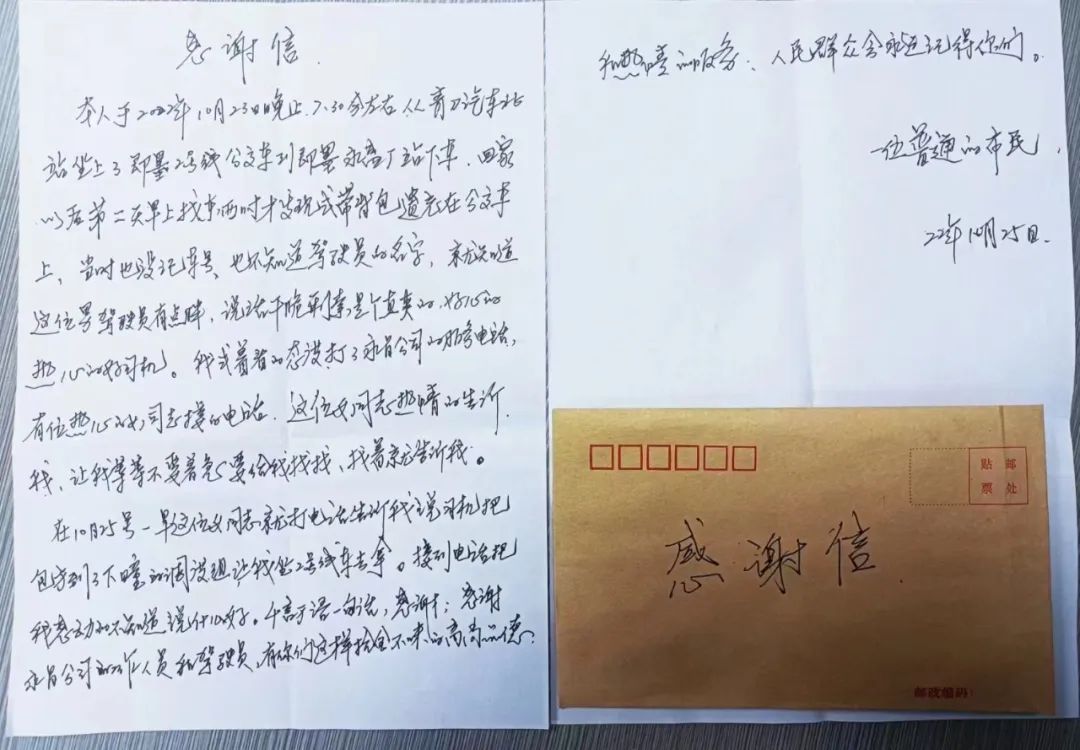 感谢信.
本人于2022年10月23日晚上7.30分左右从青刀汽车北
站坐上了即墨2号线公交车到即墨永昌厂站下车.回家
以后第二天早上找东西时才发现我带背包遗忘在公交车
上、当时也没记车号、也不知道驾驶员的名字,就知道
这位男驾驶员有点胖,说话干脆利索是个真实的.好心的
热心的好司机。我试着看的态度打了永昌公司的服务电话,
有位热心的女同志接的电话.这位女同志热情的告诉.
我、让我等等不要着急要给我找找、找着就告诉我。
在10月25号一早这位女同志就打电话告诉我说司机把
包字到了下疃的调度组让我坐2号线车去拿。接到电话把
我感动的不知道说什么好。千言万语一句话,感谢;感谢
永昌公司的工作人员和驾驶员,有你们这样拾金不昧的高尚品德.
和热情的服务、人民群众会永远记得你们。
一位普通的市民.
22年10月25日.
贴 邮
票 处
感谢信.
邮政编码: